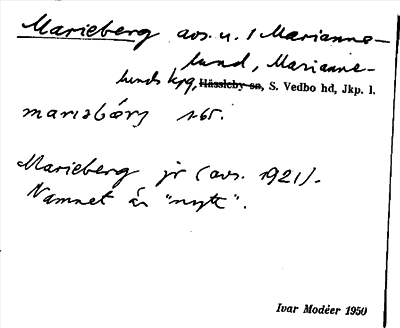 Marieberg avs. u. 1 Marianne-
lund, Marianne-
lunds kpg, Hässleby sn, S. Vedbo hd, Jkp. l.
mariabærj 1st.
Marieberg jr (avs. 1921).
Namnet är "nytt".
Ivar Modéer 1950